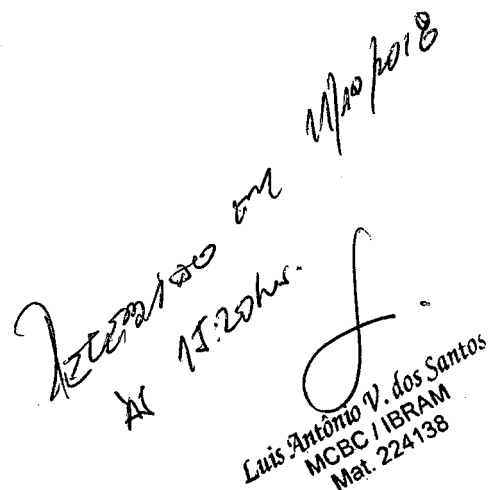 Recebido em 11/10/2018
às 15:20hs.
Luis Antônio V. dos Santos
MCBC / IBRAM
Mat. 224138